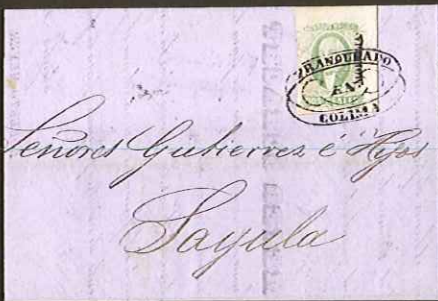 FRANQUEADO
EN
COLIMA
Señores Gutierrez é Hijos
Sayula